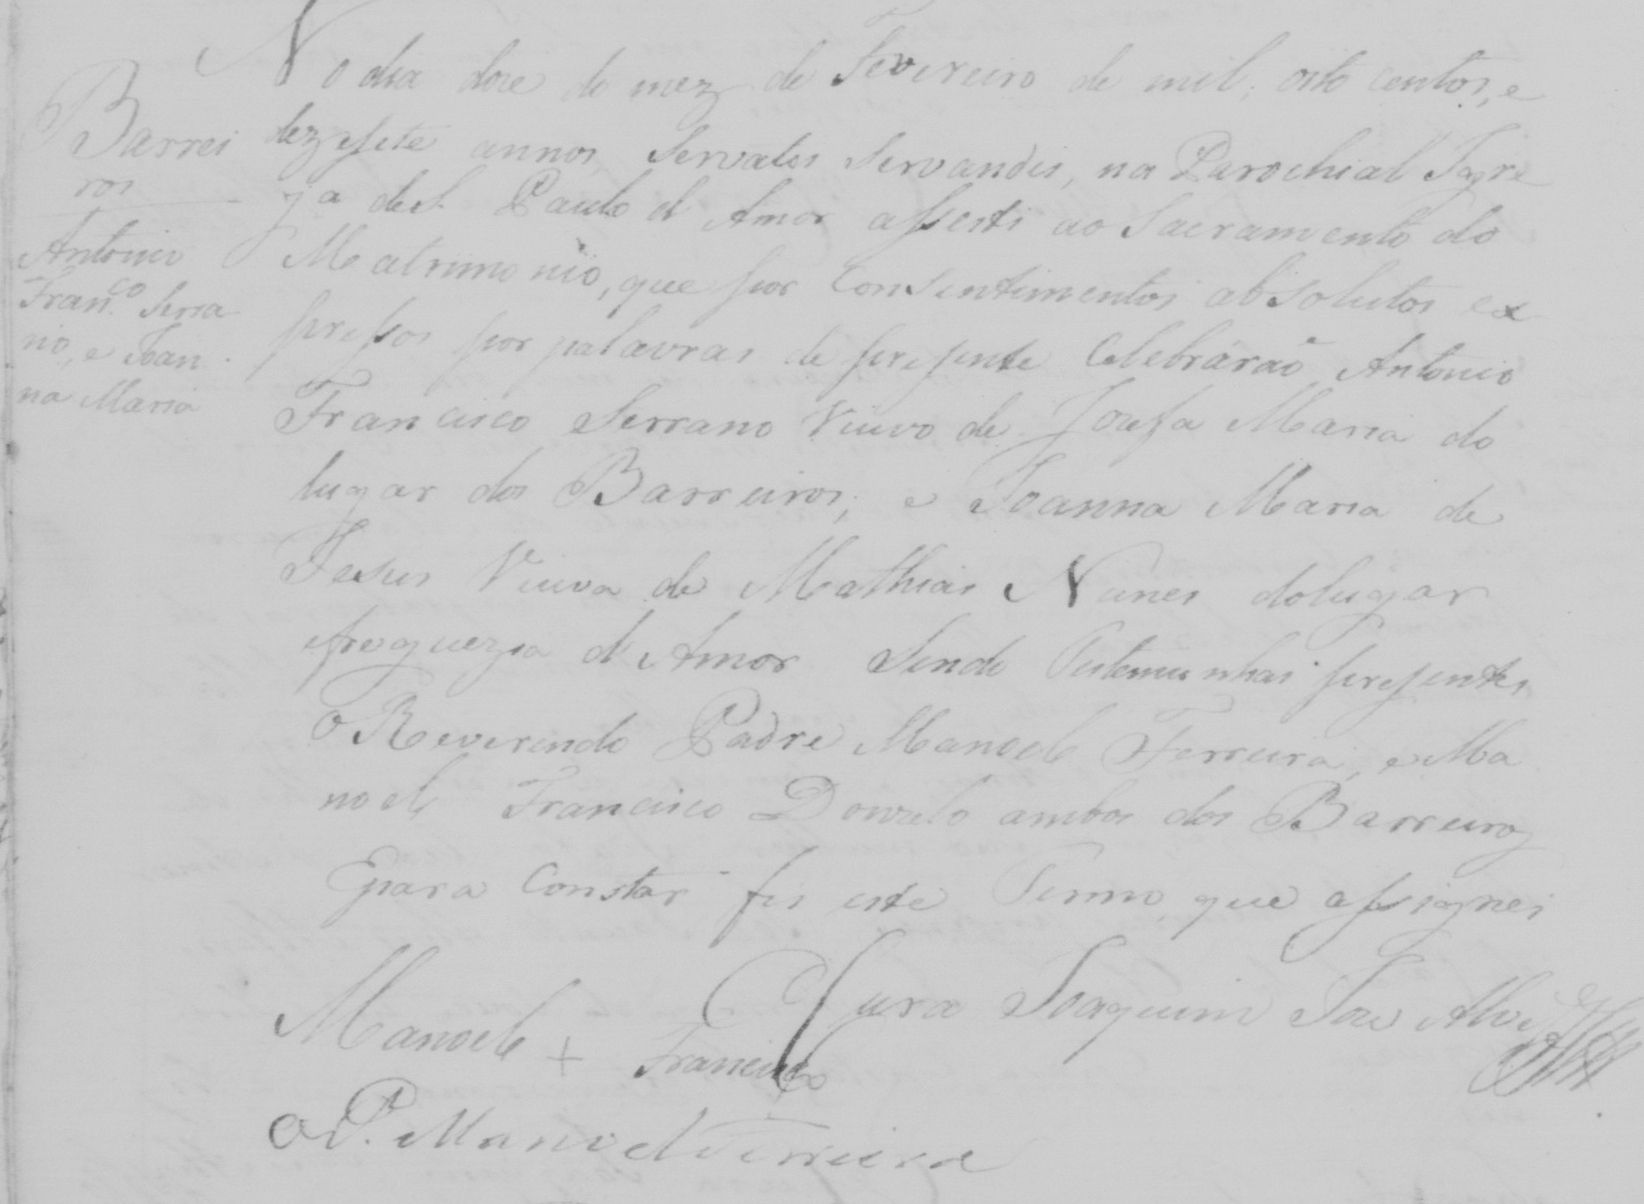 Barrei
ros
Antonio
Fran.co Serra
no, e Joan
na Maria
No dia doze do mez de Fevereiro de mil, oito centos, e
dezesete annos, Servatis Servandis, na Parochial Igre
ja de S. Paulo d Amor assesti ao Sacramento do
Matrimonio, que por Consentimentos absolutos ex
pressos por palavras de presente Celebrárão Antonio
Francisco Serrano Viuvo de Jousa Maria do
lugar dos Barreiros, e Joanna Maria de
Jesus Viuva de Mathias Nunes do lugar
e freguezia d Amor Sendo Testemunhas presentes
o Reverendo Padre Manoel Ferreira, e Ma
noel Francisco ambos dos Barreiros
E para Constar fis este Termo, que assignei
Cura Joaquim Joze Alves
Manoel + Francisco
O P. Manoel Ferreira